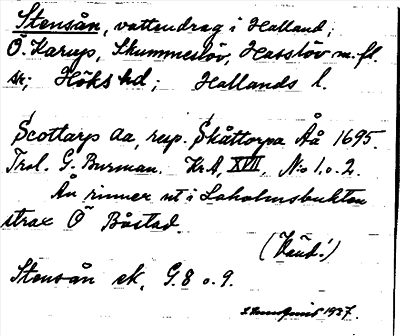 Stensån, vattendrag i Halland;
Ö. Karup, Skummeslöv, Hasslöv m. fl.
sn; Höks hd; Hallands l.
Scottarps Aa, resp. Skåttorpa Åå 1695.
Trol. G. Burman. KrA, XVII, N:o 1. o. 2.
Ån rinner ut i Laholmsbukten
strax Ö Båstad.
(Vänd!)
Stensån ek. G. 8 o. 9.
1937.